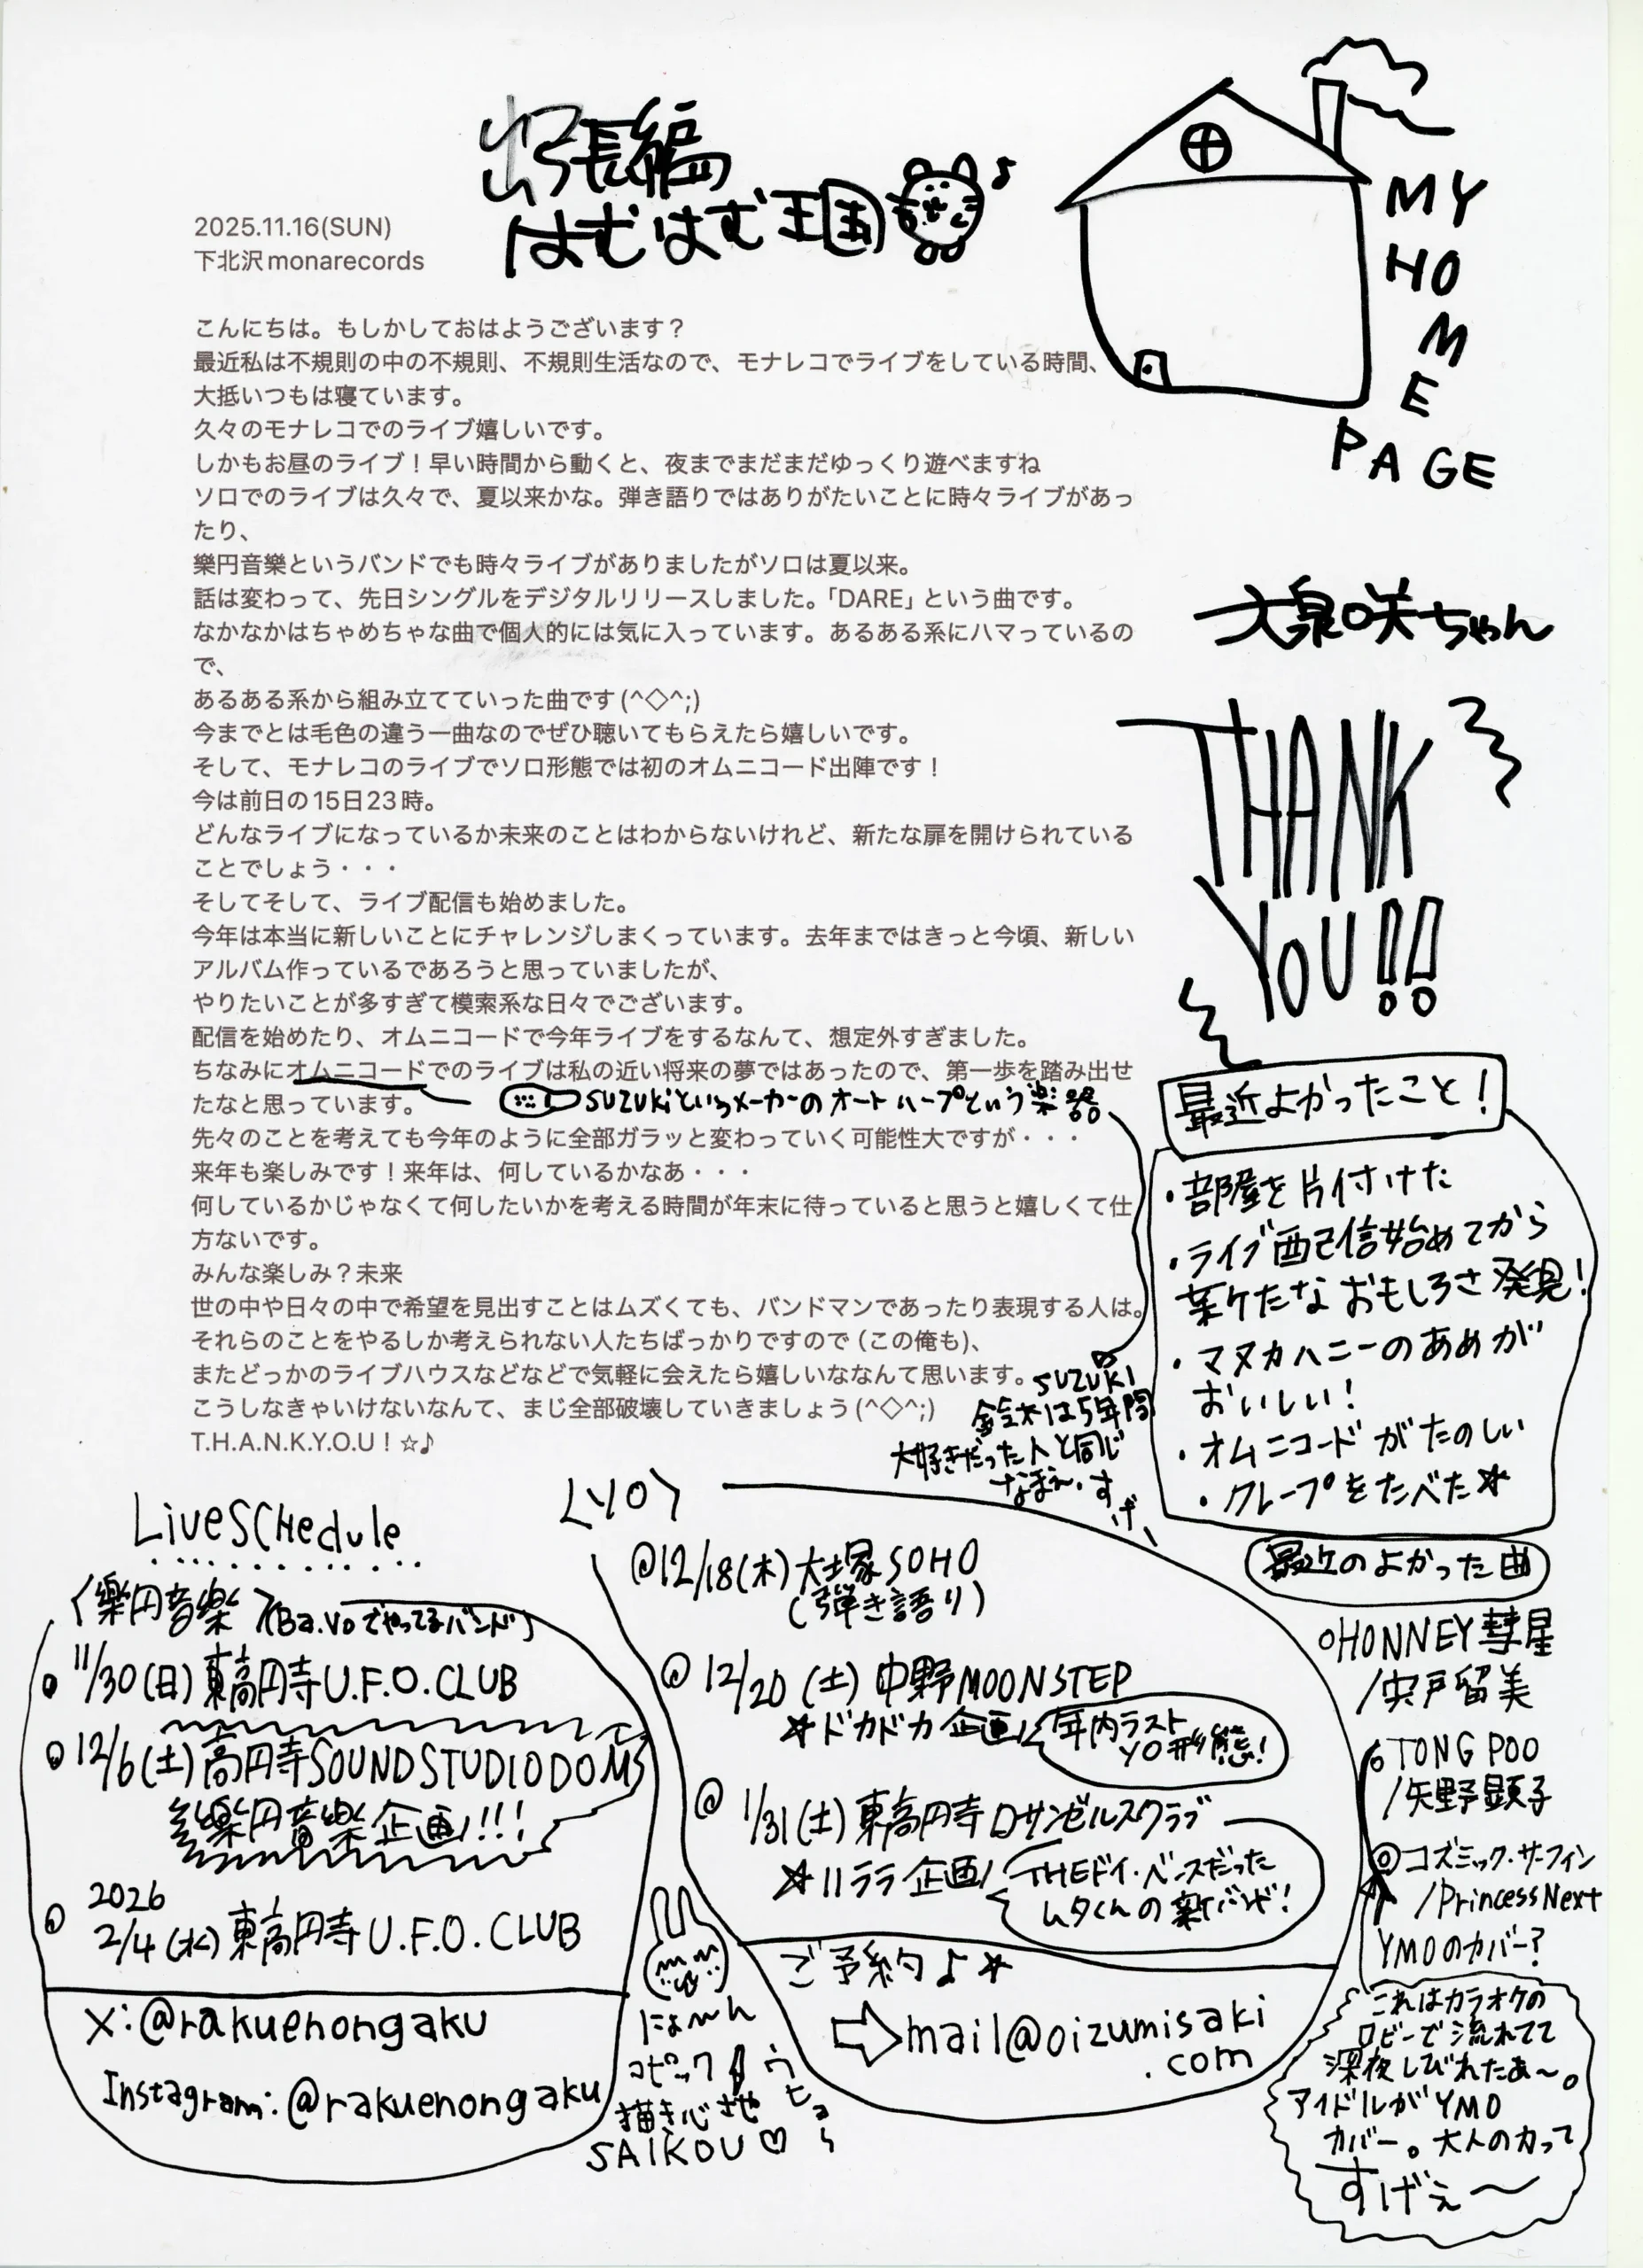 出張編
はむはむ王国
♪
MY
HO
M
E
PAGE
2025.11.16(SUN)
下北沢monarecords
こんにちは。もしかしておはようございます？
最近私は不規則の中の不規則、不規則生活なので、モナレコでライブをしている時間、
大抵いつもは寝ています。
久々のモナレコでのライブ嬉しいです。
しかもお昼のライブ！早い時間から動くと、夜までまだまだゆっくり遊べますね
ソロでのライブは久々で、夏以来かな。弾き語りではありがたいことに時々ライブがあっ
たり、
樂円音樂というバンドでも時々ライブがありましたがソロは夏以来。
話は変わって、先日シングルをデジタルリリースしました。「DARE」という曲です。
なかなかはちゃめちゃな曲で個人的には気に入っています。あるある系にハマっているの
で、
あるある系から組み立てていった曲です(^◇^;)
今までとは毛色の違う一曲なのでぜひ聴いてもらえたら嬉しいです。
そして、モナレコのライブでソロ形態では初のオムニコード出陣です！
今は前日の15日23時。
どんなライブになっているか未来のことはわからないけれど、新たな扉を開けられている
ことでしょう・・・
そしてそして、ライブ配信も始めました。
今年は本当に新しいことにチャレンジしまくっています。去年まではきっと今頃、新しい
アルバム作っているであろうと思っていましたが、
やりたいことが多すぎて模索系な日々でございます。
配信を始めたり、オムニコードで今年ライブをするなんて、想定外すぎました。
ちなみにオムニコードでのライブは私の近い将来の夢ではあったので、第一歩を踏み出せ
たなと思っています。
SUZUKIというメーカーのオートハープという楽器
先々のことを考えても今年のように全部ガラッと変わっていく可能性大ですが・・・
来年も楽しみです！来年は、何しているかなあ・・・
何しているかじゃなくて何したいかを考える時間が年末に待っていると思うと嬉しくて仕
方ないです。
みんな楽しみ？未来
世の中や日々の中で希望を見出すことはムズくても、バンドマンであったり表現する人は。
それらのことをやるしか考えられない人たちばっかりですので（この俺も)、
またどっかのライブハウスなどなどで気軽に会えたら嬉しいななんて思います。
こうしなきゃいけないなんて、まじ全部破壊していきましょう(^◇^;)
T.H.A.N.K.Y.O.U！☆♪
SUZUKI
鈴木は5年間
大好きだった人と同じ
なまえ。す
げー
大泉咲ちゃん
THANK
YOU!!
最近よかったこと！
・部屋を片付けた
・ライブ配信始めてから
新たなおもしろさ発見！
・マヌカハニーのあめが
おいしい！
・オムニコードがたのしい
・クレープをたべた☆
最近のよかった曲
○HONNEY彗星
/宍戸留美
○TONG POO
/矢野顕子
◎コズミック・サーフィン
/PrincessNext
YMOのカバー？
これはカラオケの
ロビーで流れてて
深夜しびれたあ〜。
アイドルがYMO
カバー。大人の力って
すげぇ〜
LiveSCHedule
〈樂円音樂〉(Ba.Voでやってるバンド)
11/30(日)東高円寺U.F.O.CLUB
12/6(土)高円寺SOUNDSTUDIODOM
樂円音樂企画!!!
2026
2/4(水)東高円寺U.F.O.CLUB
X:@rakuenongaku
Instagram:@rakuenongaku
〈YO〉
@12/18(木)大塚SOHO
(弾き語り)
@12/20(土)中野MOONSTEP
☆ドカドカ企画
年内ラスト
YO形態！
@1/31(土)東高円寺ロサンゼルスクラブ
☆リララ企画
THEドイ・ベースだった
ムタくんの新バンド！
ご予約♪☆
⇨mail@oizumisaki
.com
にょ〜ん
コピック
描き心地
SAIKOU♡
ウヒョー